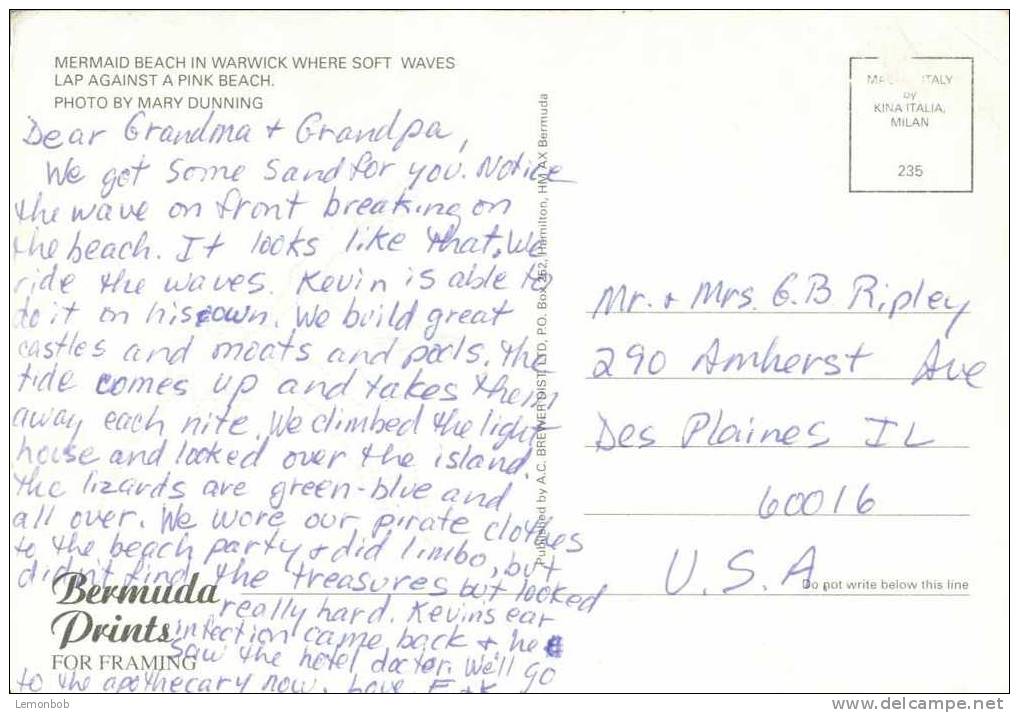 MERMAID BEACH IN WARWICK WHERE SOFT WAVES
LAP AGAINST A PINK BEACH.
PHOTO BY MARY DUNNING
Dear Grandma + Grandpa,
We got some sand for you. Notice
the wave on front breaking on
the beach. It looks like that. We
ride the waves. Kevin is able to
do it on his own. We build great
castles and moats and pools. The
tide comes up and takes them
away each nite. We climbed the light-
house and looked over the island.
The lizards are green-blue and
all over. We wore our pirate clothes
to the beach party & did limbo, but
didn't find the treasures but looked
really hard. Kevin's ear
infection came back & he
saw the hotel doctor. We'll go
to the apothecary now. Love, E + K
Bermuda
Prints
FOR FRAMING
Published by A.C. BREWER DIST. LTD, P.O. Box 252, Hamilton, HM AX Bermuda
ITALY
by
KINA ITALIA,
MILAN
235
Mr. + Mrs. G.B Ripley
290 Amherst Ave
Des Plaines IL
60016
U.S.A.
Do not write below this line
Lemonbob
delcampe.net